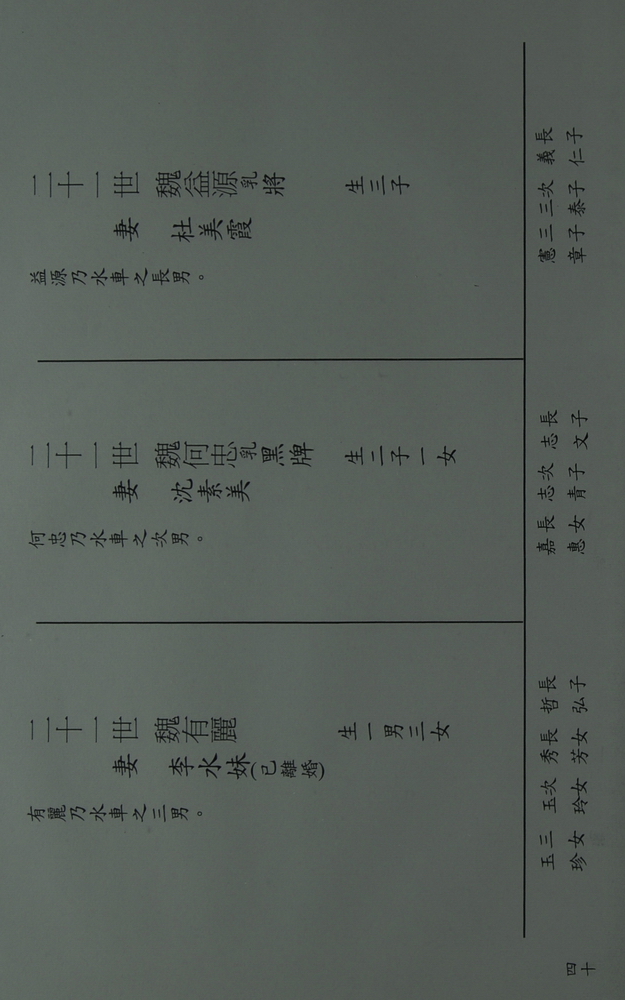 二十一世 魏益源乳將
妻 杜美霞
益源乃水車之長男。
生三子
長子
義仁
次子
三泰
三子
憲章
二十一世 魏何忠乳黑牌
妻 沈素美
何忠乃水車之次男。
生二子一女
長子
志文
次子
志青
長女
嘉惠
二十一世 魏有麗
妻 李水妹(已離婚)
有麗乃水車之三男。
生一男三女
長子
哲弘
長女
秀芳
次女
玉玲
三女
玉珍
四十